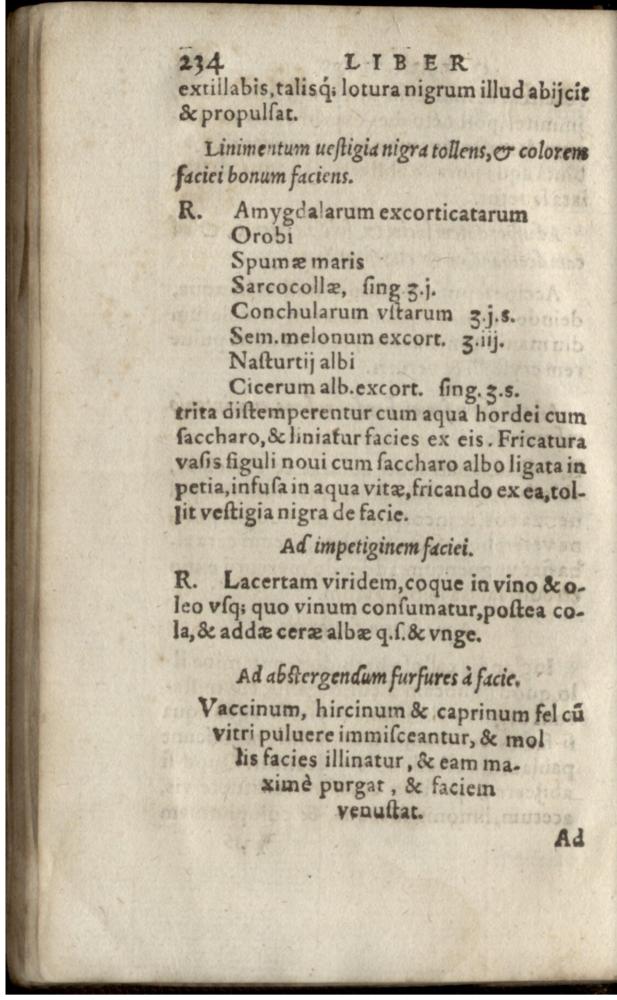 234 LIBER
extillabis,talisq́; lotura nigrum illud abijcit
& propulſat.
Linimentum ueſtigia nigra tollens,& colorem
faciei bonum faciens.
R. Amygdalarum excorticatarum
Orobi
Spumæ maris
Sarcocollæ, ſing ʒ.j.
Conchularum vſtarum ʒ.j.s.
Sem.melonum excort. ʒ.iij.
Naſturtij albi
Cicerum alb.excort. ſing.ʒ.s.
trita diſtemperentur cum aqua hordei cum
ſaccharo,& liniatur facies ex eis. Fricatura
vaſis figuli noui cum ſaccharo albo ligata in
petia,infuſa in aqua vitæ,fricando ex ea,tol-
lit veſtigia nigra de facie.
Ad impetiginem faciei.
R. Lacertam viridem,coque in vino & o-
leo vſq; quo vinum conſumatur,poſtea co-
la,& addæ ceræ albæ q.ſ.& vnge.
Ad abſtergendum furfures à facie.
Vaccinum, hircinum & caprinum fel cū
vitri puluere immiſceantur, & mol
lis facies illinatur, & eam ma-
ximè purgat, & faciem
venuſtat.
Ad